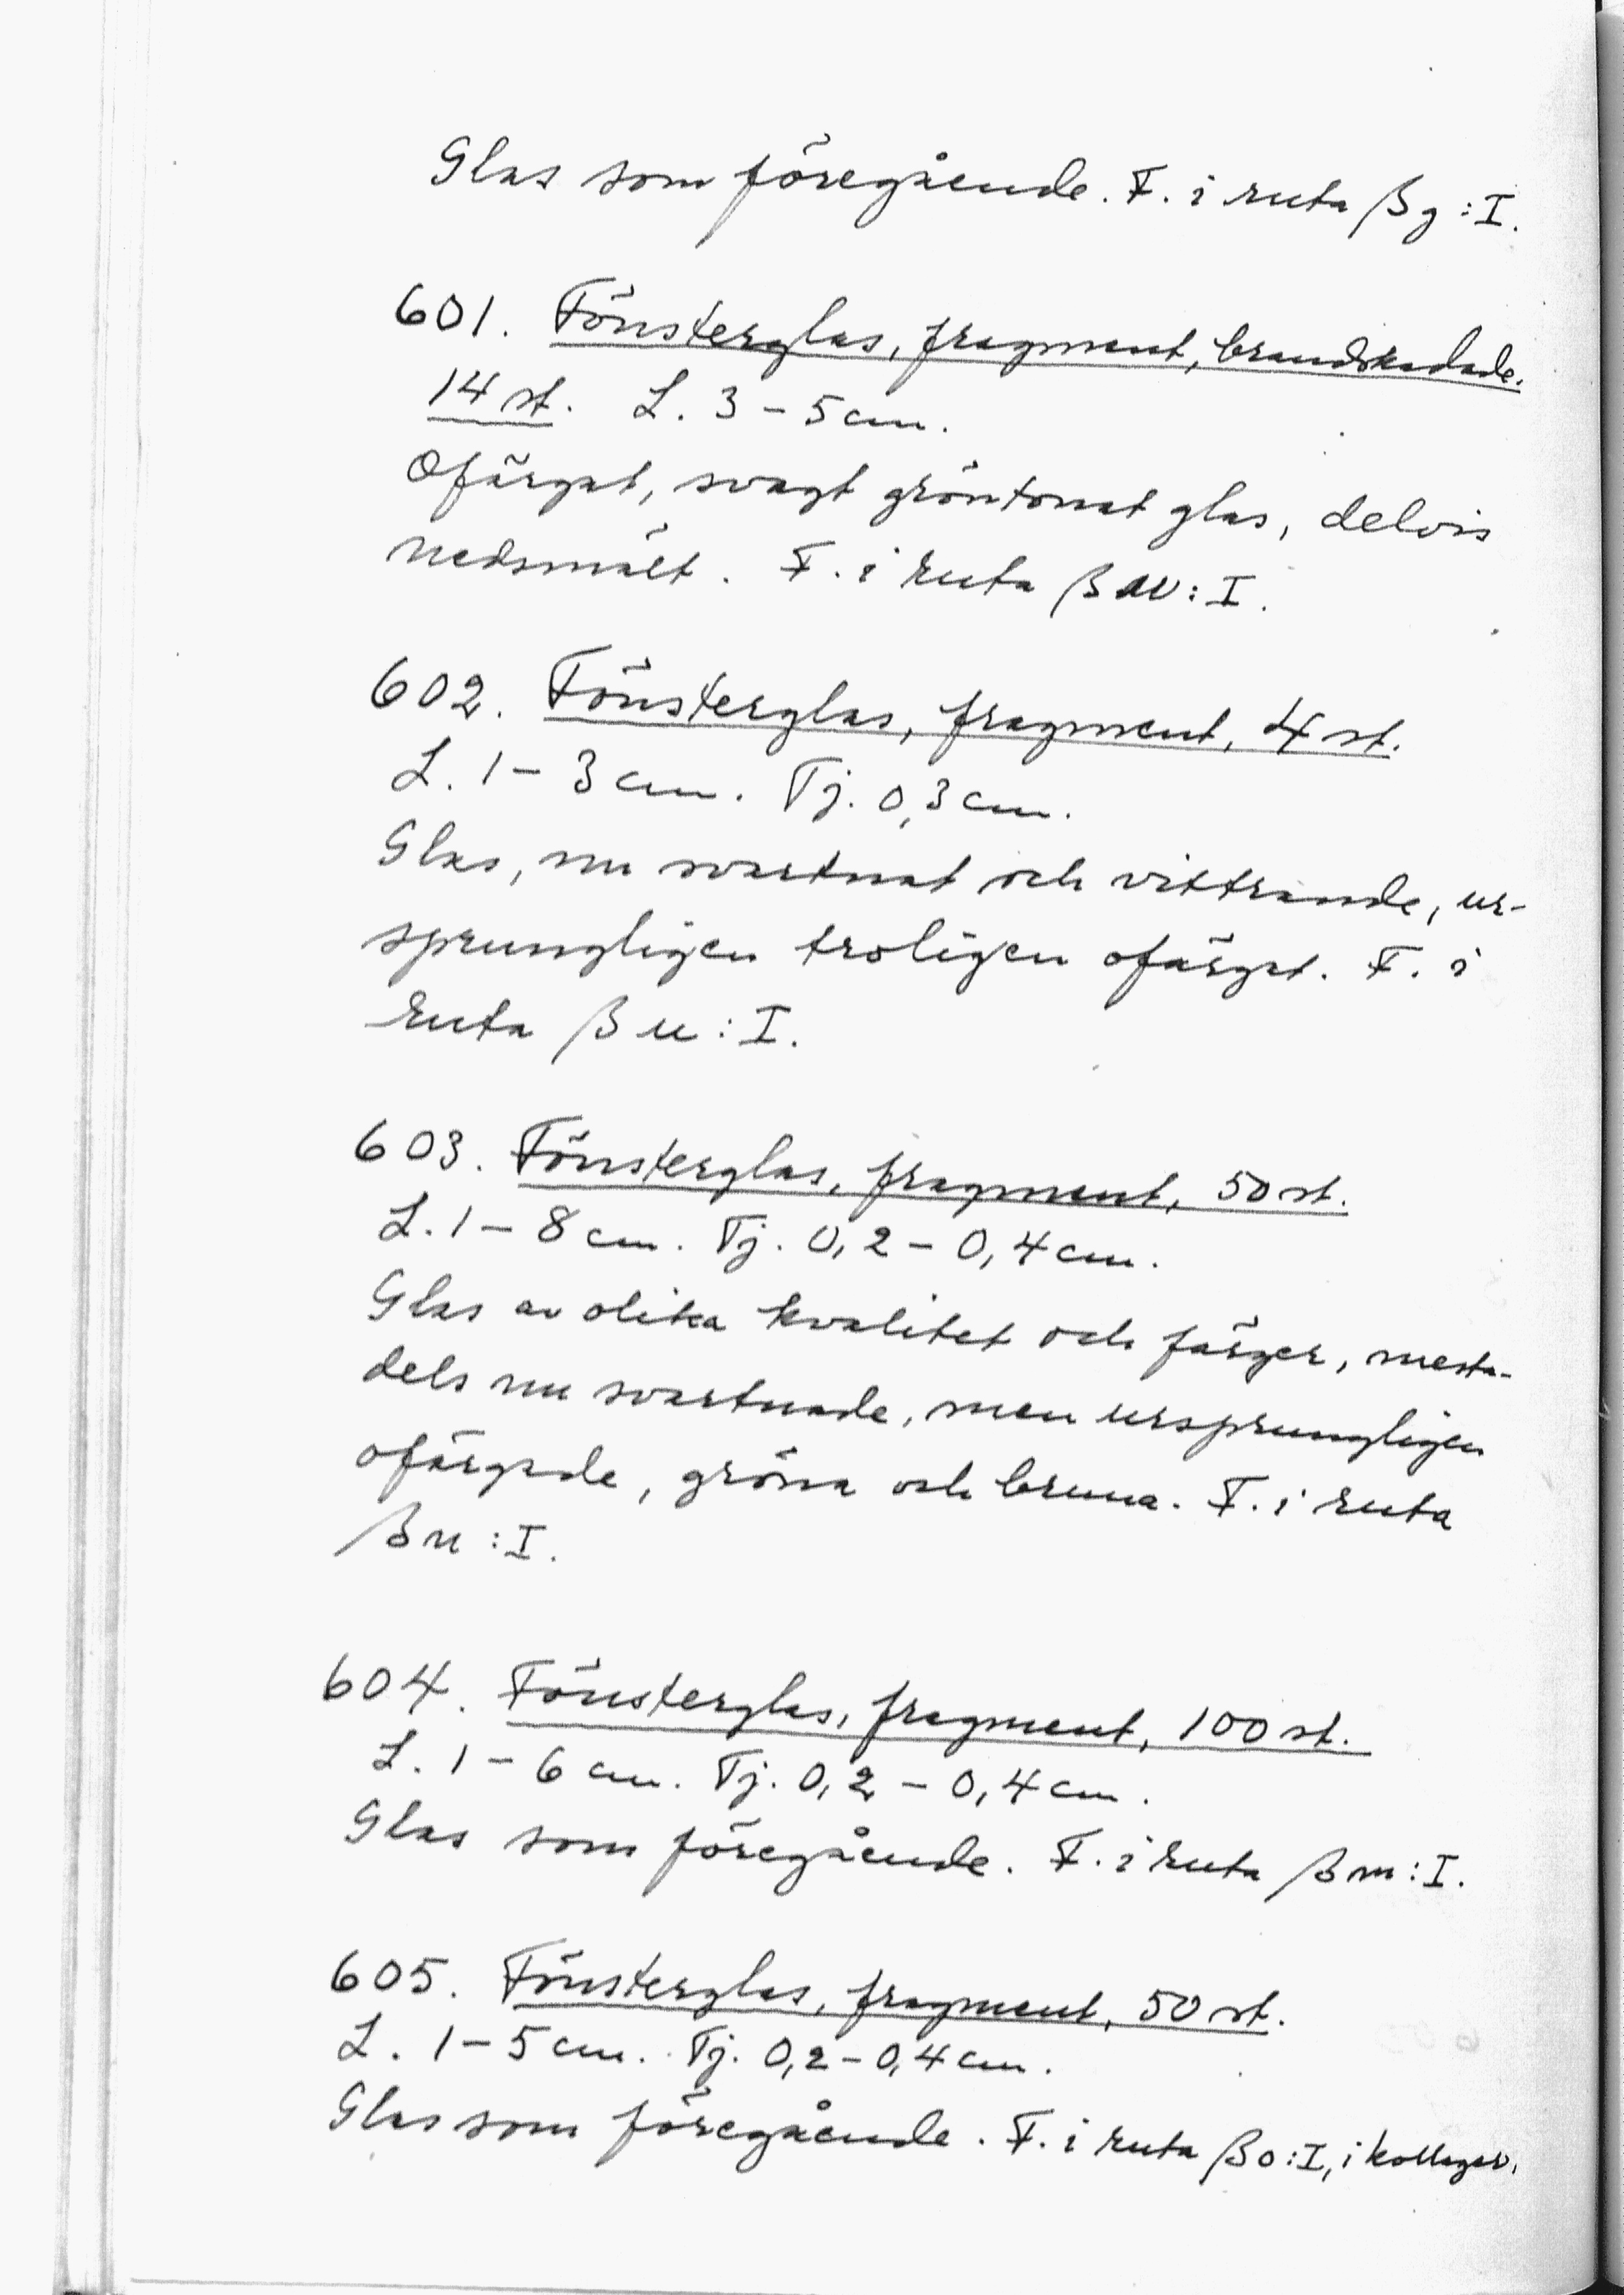 Glas som föregående. F. i ruta βg:I.
601. Fönsterglas, fragment, brandskadade.
14 st. L. 3-5 cm.
Ofärgat, svagt gröntonat glas, delvis
nedsmält. F. i ruta β:I.
602. Fönsterglas, fragment, 4 st.
L. 1-3 cm. Tj. 0,3 cm.
Glas, nu svartnat och vittrande, ur-
sprungligen troligen ofärgat. F. i
ruta βu:I.
603. Fönsterglas, fragment, 50 st.
L. 1-8 cm. Tj. 0,2-0,4 cm.
Glas av olika kvalitet och färger, mesta-
dels nu svartnade, men ursprungligen
ofärgade, gröna och bruna. F. i ruta
βn:I.
604. Fönsterglas, fragment, 100 st.
L. 1-6 cm. Tj. 0,2-0,4 cm.
Glas som föregående. F. i ruta βm:I.
605. Fönsterglas, fragment, 50 st.
L. 1-5 cm. Tj. 0,2-0,4 cm.
Glas som föregående. F. i ruta βo:I, i kollager.